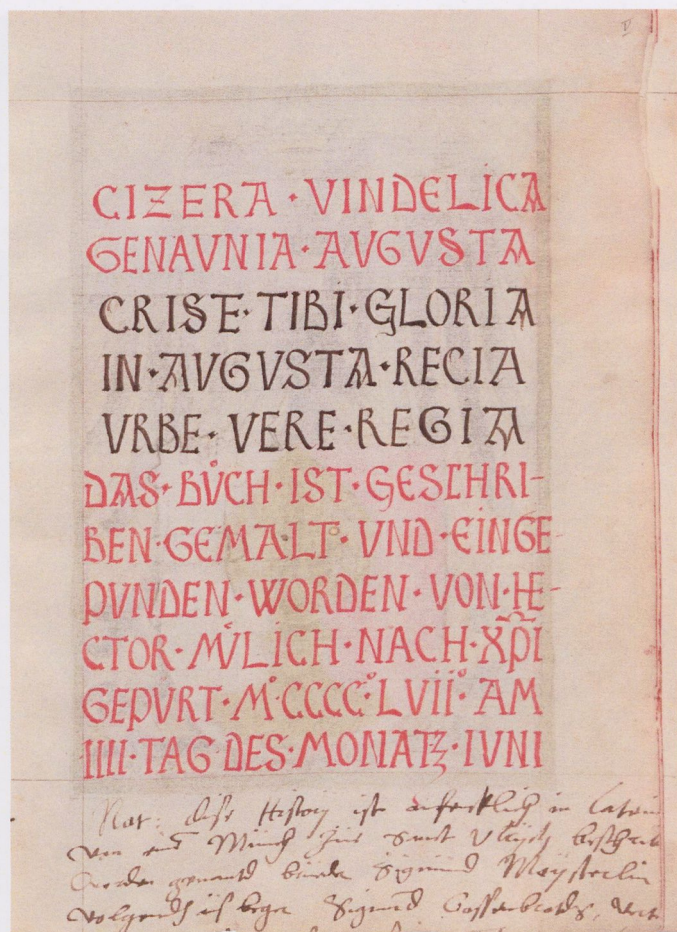 CIZERA · VINDELICA
GENAVNIA · AVGVSTA
CRISE · TIBI · GLORIA
IN · AVGVSTA · RECIA
VRBE · VERE · REGIA
DAS · BVͦCH · IST · GESCHRI-
BEN · GEMALT · VND · EINGE-
PVNDEN · WORDEN · VON · HE-
CTOR · MVͦLICH · NACH · XP̃I
GEPVRT · Mͦ · CCCCͦ · LVIIͦ · AM
IIII · TAG · DES · MONATZ · IVNI
Not: dise History ist anfenklich in Latein
von Münch zuͦ Sant Ulrich
genannt Sigmund Maysterlin
volgends Sigmund Gossenbrots